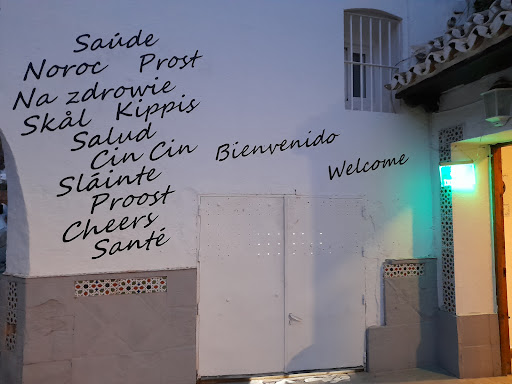 Saúde
Noroc Prost
Na zdrowie
Skål Kippis
Salud
Cin Cin
Sláinte
Proost
Cheers
Santé
Bienvenido
Welcome